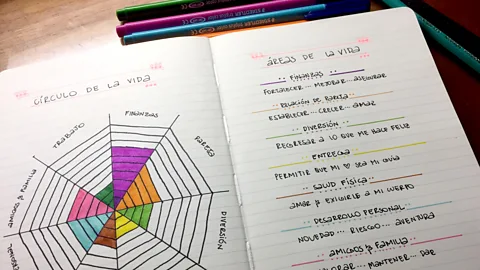 CÍRCULO DE LA VIDA
FINANZAS
PAREJA
DIVERSIÓN
TRABAJO
AMIGOS & FAMILIA
ÁREAS DE LA VIDA
FINANZAS
FORTALECER... MEJORAR... ASEGURAR
RELACIÓN DE PAREJA
ESTABLECER... CRECER... AMAR
DIVERSIÓN
REGRESAR A LO QUE ME HACE FELIZ
ENTREGA
PERMITIR QUE MI ♥ SEA MI GUÍA
SALUD FÍSICA
AMAR & EXIGIRLE A MI CUERPO
DESARROLLO PERSONAL
NOVEDAD... RIESGO... AVENTURA
AMIGOS & FAMILIA
MANTENER... DAR